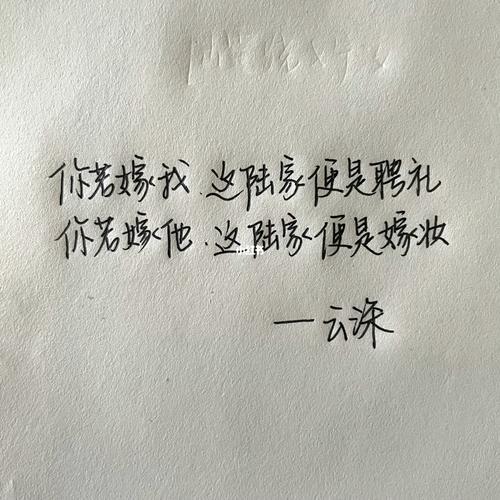 你若嫁我.这陆家便是聘礼
你若嫁他.这陆家便是嫁妆
—云深